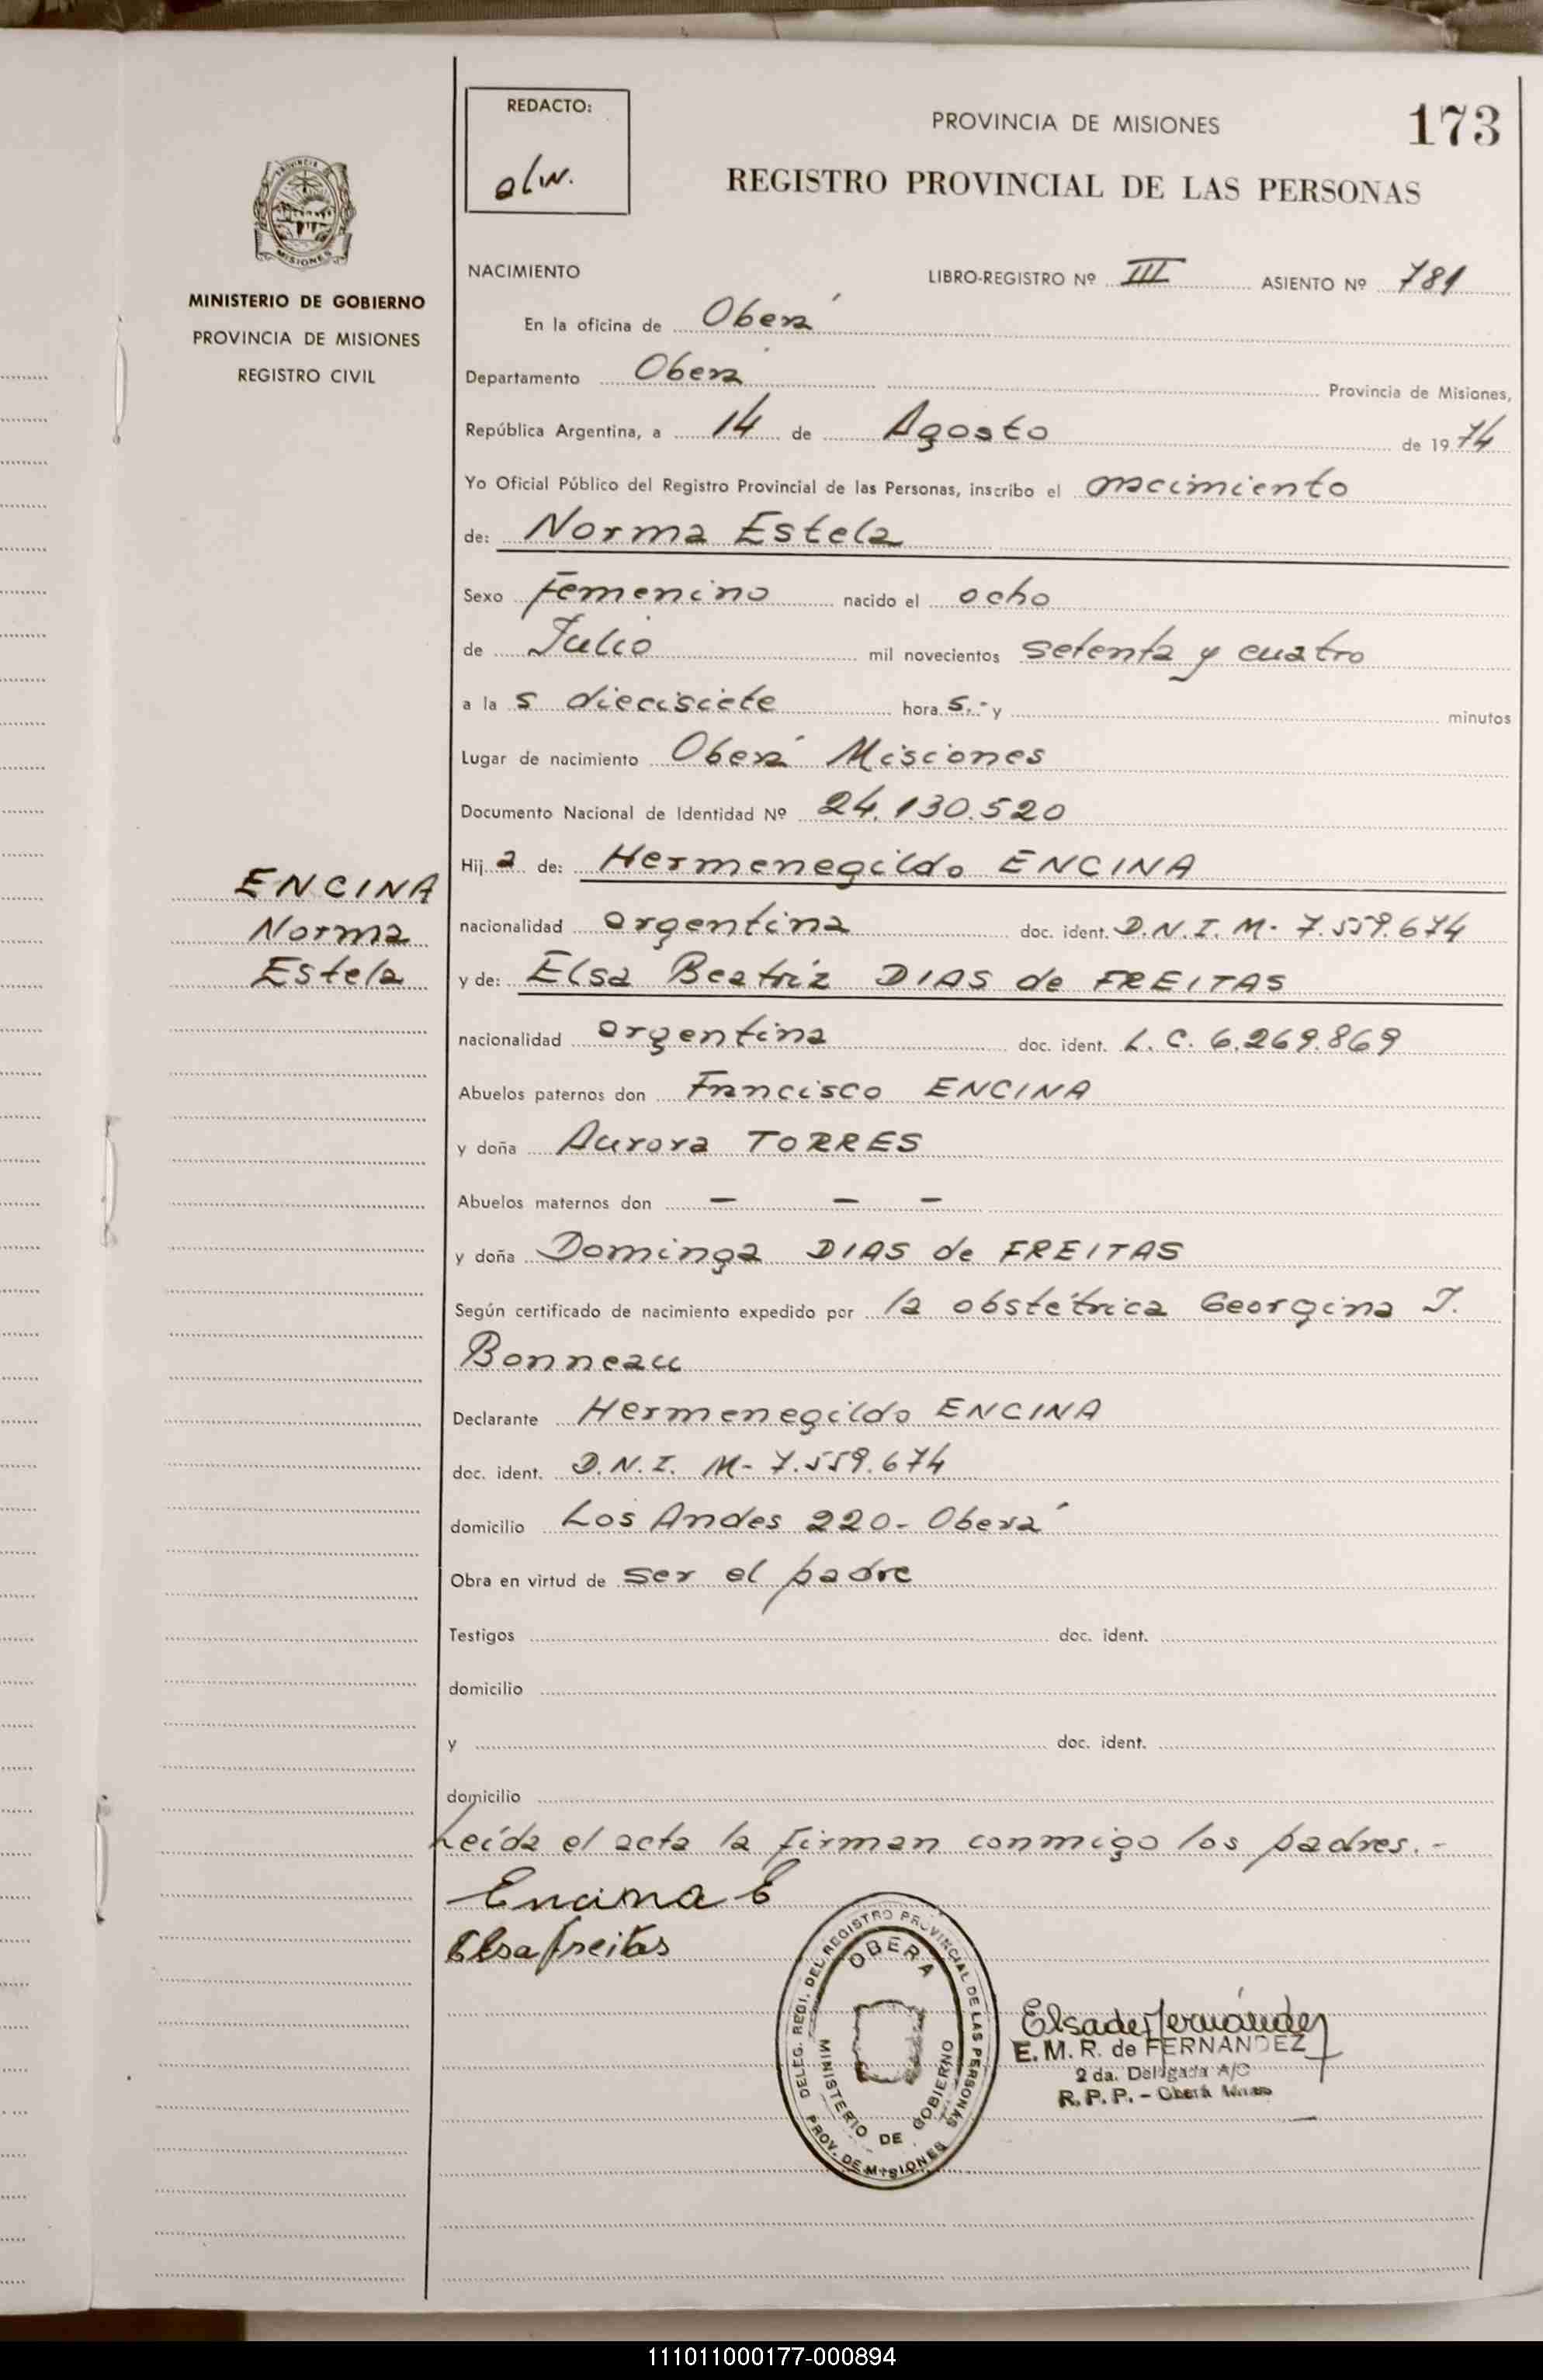 REDACTO:
alw.
PROVINCIA DE MISIONES
173
REGISTRO PROVINCIAL DE LAS PERSONAS
PROVINCIA
MISIONES
MINISTERIO DE GOBIERNO
PROVINCIA DE MISIONES
REGISTRO CIVIL
NACIMIENTO LIBRO-REGISTRO Nº III ASIENTO Nº 781
En la oficina de Oberá
Departamento Oberá Provincia de Misiones,
República Argentina, a 14 de Agosto de 1974
Yo Oficial Público del Registro Provincial de las Personas, inscribo el nacimiento
de: Norma Estela
Sexo Femenino nacido el ocho
de Julio mil novecientos setenta y cuatro
a la s diecisiete hora s.- y minutos
Lugar de nacimiento Oberá Misiones
Documento Nacional de Identidad Nº 24.130.520
Hij a de: Hermenegildo ENCINA
ENCINA
Norma
Estela
nacionalidad argentina doc. ident. D.N.I. M- 7.559.674
y de: Elsa Beatriz DIAS de FREITAS
nacionalidad argentina doc. ident. L. C. 6.269.869
Abuelos paternos don Francisco ENCINA
y doña Aurora TORRES
Abuelos maternos don — — —
y doña Dominga DIAS de FREITAS
Según certificado de nacimiento expedido por la obstétrica Georgina J.
Bonneau
Declarante Hermenegildo ENCINA
doc. ident. D.N.I. M- 7.559.674
domicilio Los Andes 220- Oberá
Obra en virtud de ser el padre
Testigos doc. ident.
domicilio
y doc. ident.
domicilio
Leída el acta la firman conmigo los padres.-
Encina E
Elsa freitas
DELEG. REGI. DEL REGISTRO PROVINCIAL DE LAS PERSONAS
OBERA
MINISTERIO DE GOBIERNO
PROV. DE MISIONES
Elsa de Fernández
E. M. R. de FERNANDEZ
2 da. Delegada A/C
R. P. P. - Oberá Mnes
111011000177-000894